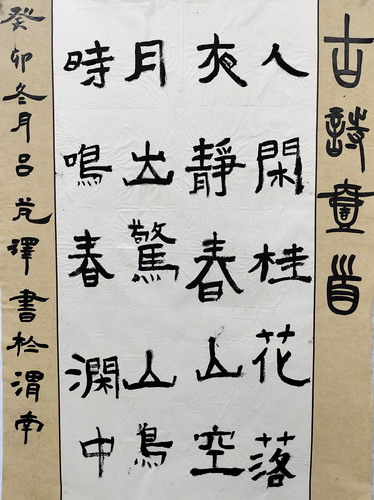 古詩壹首
人閑桂花落
夜靜春山空
月出驚山鳥
時鳴春澗中
癸卯冬月吕書於渭南